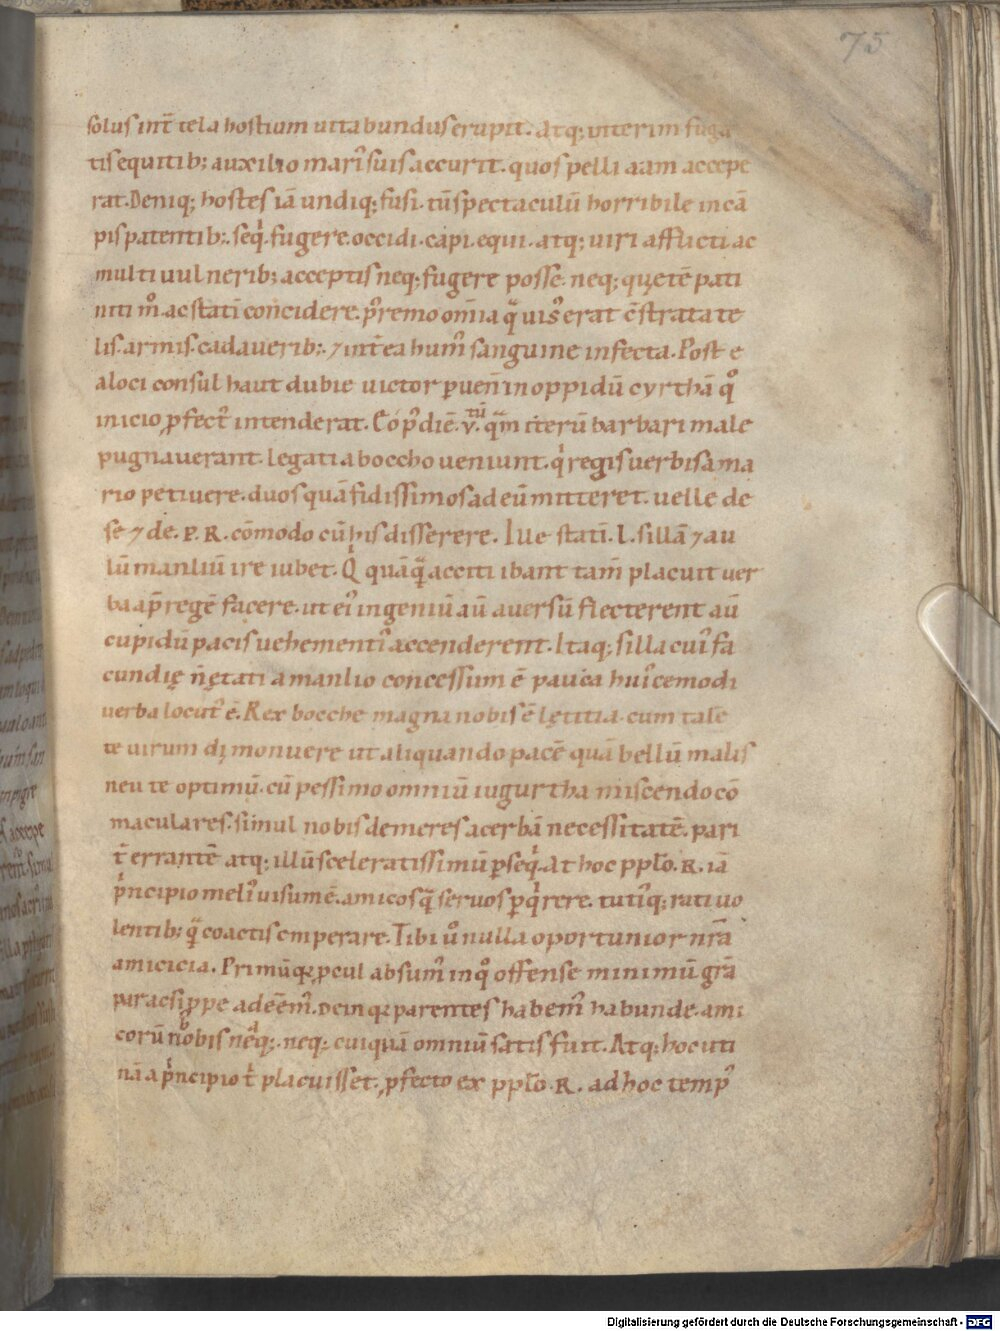 75
solus int̄ tela hostium uitabundus erupit. Atq; interim fuga
tis equitib; auxilio marı̓ suis accurit. quos pelli aam accepe
rat. Deniq; hostes iā undiq; fusi. tū spectaculū horribile in cā
pis patentib;. seq̍. fugere. occidi. capi. equi. atq; uiri afflicti ac
multi uulnerib; acceptis neq; fugere posse. neq; quȩtē pati
niti m̊. ac statī concidere. p̾remo om̄ia q̈ uis̾ erat c̄strata te
lis. armis. cadauerib;. ⁊ int̄ ea hum̾ sanguine infecta. Post e
a loci consul haut dubie uictor ꝑuen̄ in oppidū cyrthā q̊
inicio ꝓfect̾ intenderat. Có p̾diē .v. tū q̈m iterū barbari male
pugnauerant. legati a boccho ueniunt. q̍ regis uerbis a ma
rio petiuere. duos quā fidissimos ad eū mitteret. uelle de
se ⁊ de .P.R. cōmodo cū his disserere. Ille statī .L. sillā ⁊ au
lū manliū ire iubet. Q̍ quāq̈ acciti ibant tam̄ placuit uer
ba ap̄ regē facere. ut ei̾ ingeniū aū auersū flecterent aū
cupidū pacis uehementi̾ accenderent. Itaq; silla cui̾ fa
cundiȩ n̄ ȩtati a manlio concessum ē pauca hui̾cemodi
uerba locut̾ ē. Rex bocche magna nobis ē lȩtitia. cum tale
te uirum dı̨ monuere ut aliquando pacē quā bellū malis
neu te optimū. cū pessimo omniū iugurtha miscendo cō
maculares. simul nobis demeres acerbā necessitatē. pari
t̄ errantē atq; illū sceleratissimū ꝑseq̍. At hoc pplo̅ .R. iā
p̍ncipio meli̾ uisum ē. amicos q̄ seruos ꝑq̍rere. tuti̾q; rati uo
lentib; q̈ coactis emperare. Tibi u̾o nulla oportunior nr̄a
amicicia. Primū qꝛ ꝓcul absum̾ in q̊ offense minimū gr̄a
par ac si ꝓpe adeēm̾. Dein qꝛ parentes habem̾ habunde. ami
corū nobis neq;. neq; cuiquā omniū satis fuit. Atq; hoc uti
nā a p̍ncipio t̍ placuisset. ꝓfecto ex pplo̅ .R. ad hoc temp̾
Digitalisierung gefördert durch die Deutsche Forschungsgemeinschaft - DFG